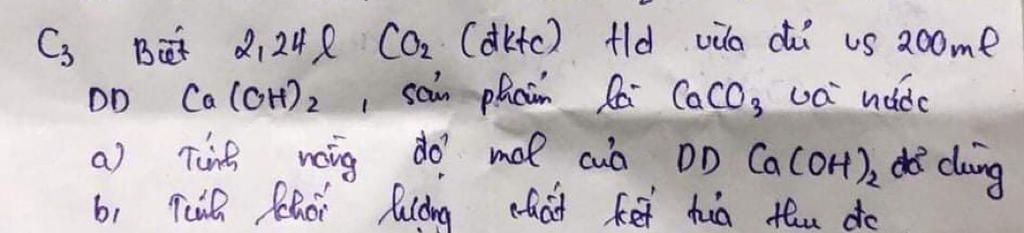 C3 Biết 2,24 l CO2 (đktc) t/d vừa đủ vs 200ml
DD Ca(OH)2, sản phẩm là CaCO3 và nước
a) Tính nồng độ mol của DD Ca(OH)2 đã dùng
b, Tính khối lượng chất kết tủa thu đc